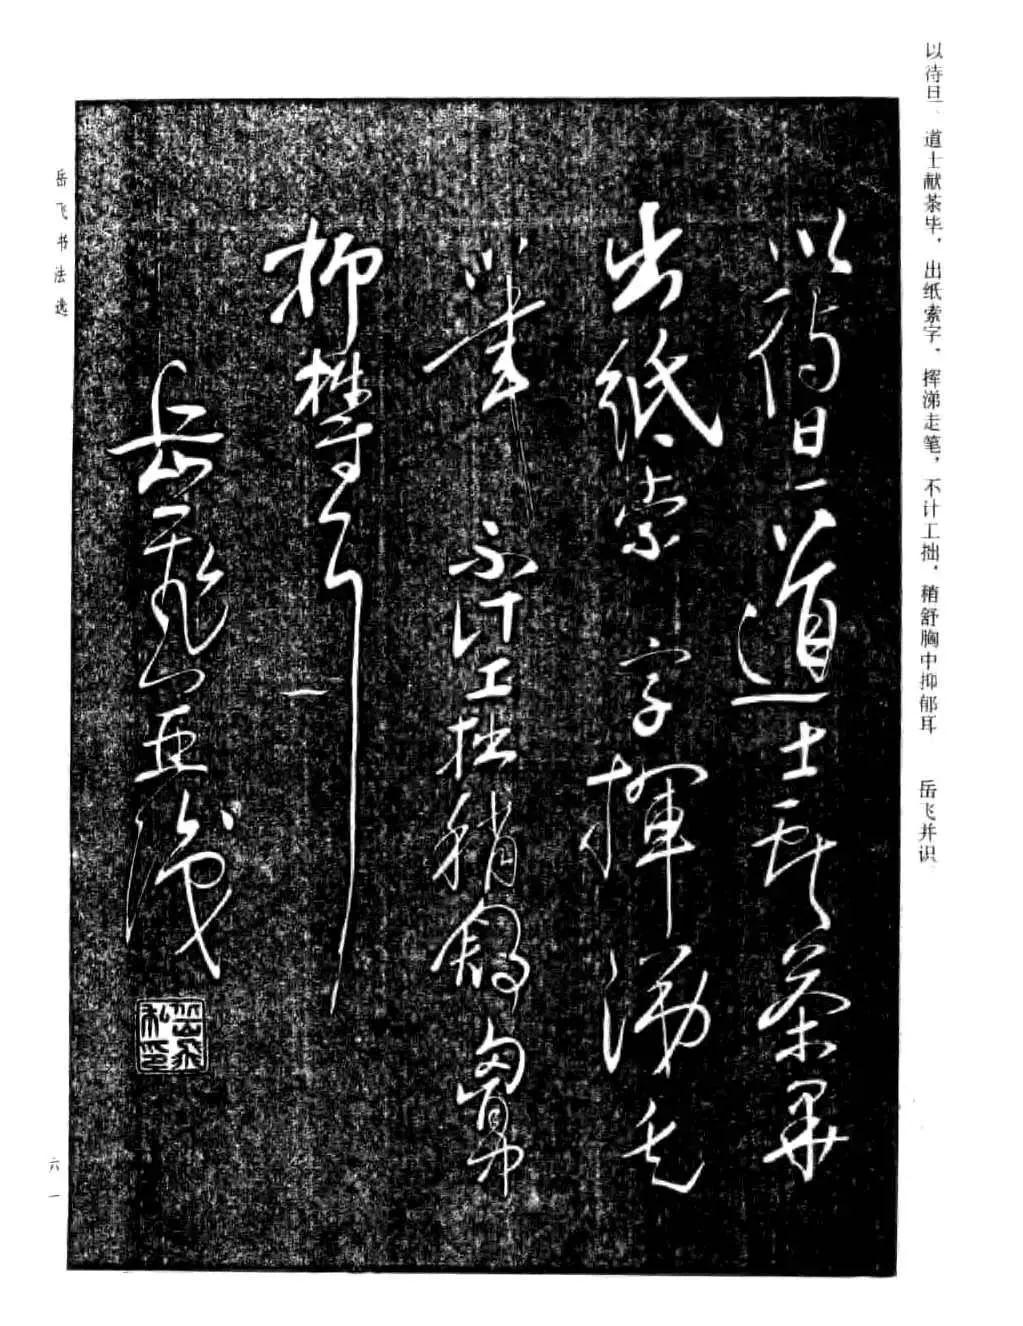 以待旦 道士献茶毕，出纸索字，挥涕走笔，不计工拙，稍舒胸中抑郁耳 岳飞并识
以待旦道士献茶畢
出紙索字揮涕走
筆不計工拙稍舒胸中
抑鬱耳
岳飛並識
岳飛私印
岳飞书法选
六一